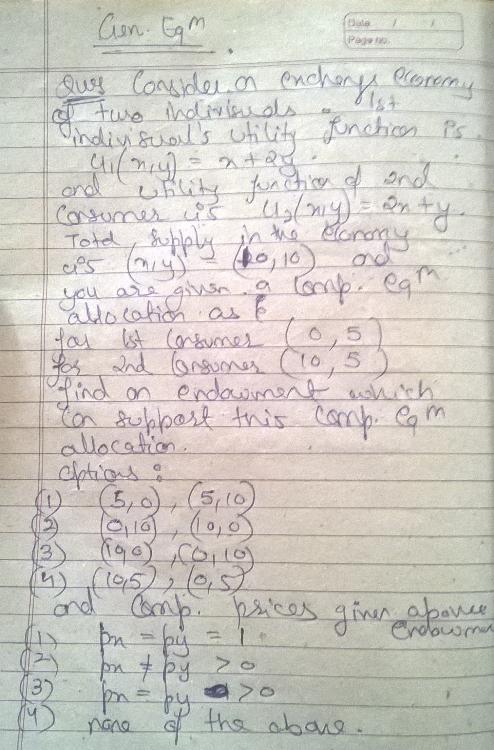 Gen. Eqᵐ
Date / /
Page no.
Ques Consider an exchange economy
of two individuals. 1st
individual's utility function is
u₁(x,y) = x + 2y.
and utility function of 2nd
Consumer is u₂(x,y) = 2x + y.
Total supply in the economy
is (x,y) = (10, 10) and
you are given a Comp. eqᵐ
allocation as
for 1st Consumer (0, 5)
for 2nd Consumer (10, 5)
find an endowment which
can support this comp. eqᵐ
allocation.
options :
(1) (5, 0) , (5, 10)
(2) (0, 10) , (10, 0)
(3) (10, 0) , (0, 10)
(4) (10, 5) , (0, 5)
and Comp. prices given above
endowmen
(1) px = py = 1
(2) px ≠ py > 0
(3) px = py > 0
(4) none of the above.